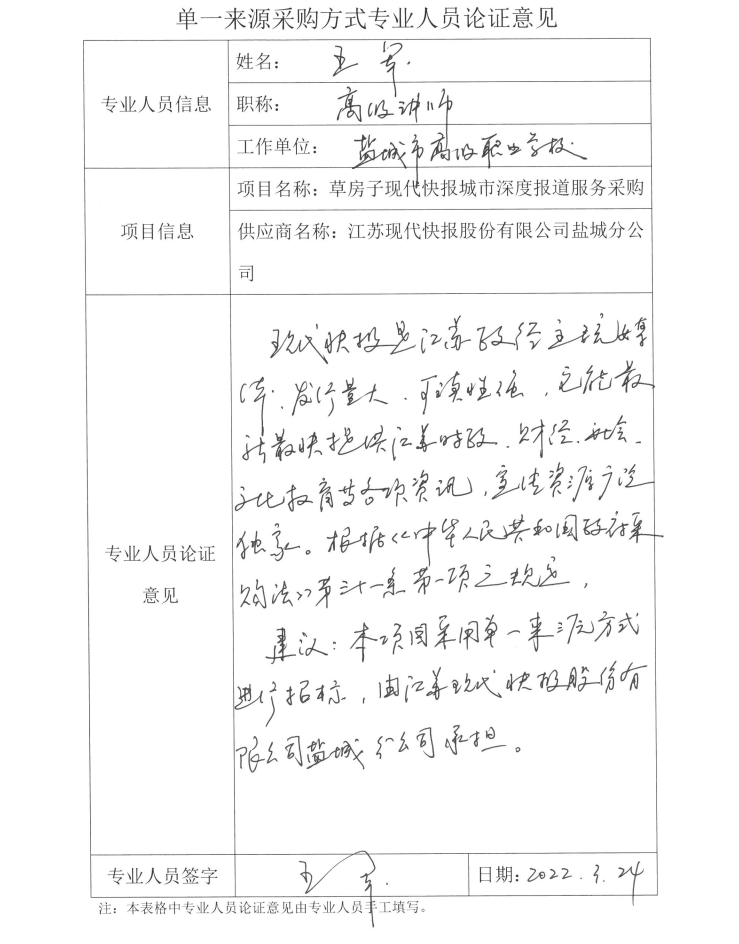 单一来源采购方式专业人员论证意见
专业人员信息
姓名：王军.
职称：高级讲师
工作单位：盐城市高级职业学校
项目信息
项目名称：草房子现代快报城市深度报道服务采购
供应商名称：江苏现代快报股份有限公司盐城分公
司
专业人员论证
意见
现代快报是江苏政经主流媒
体，发行量大、可读性强，它能最
新最快提供江苏时政、财经、社会、
文化教育等各项资讯，宣传资源广泛
独家。根据《中华人民共和国政府采
购法》第三十一条第一项之规定，
建议：本项目采用单一来源方式
进行招标，由江苏现代快报股份有
限公司盐城分公司承担。
专业人员签字
王军
日期：2022.3.24
注：本表格中专业人员论证意见由专业人员手工填写。